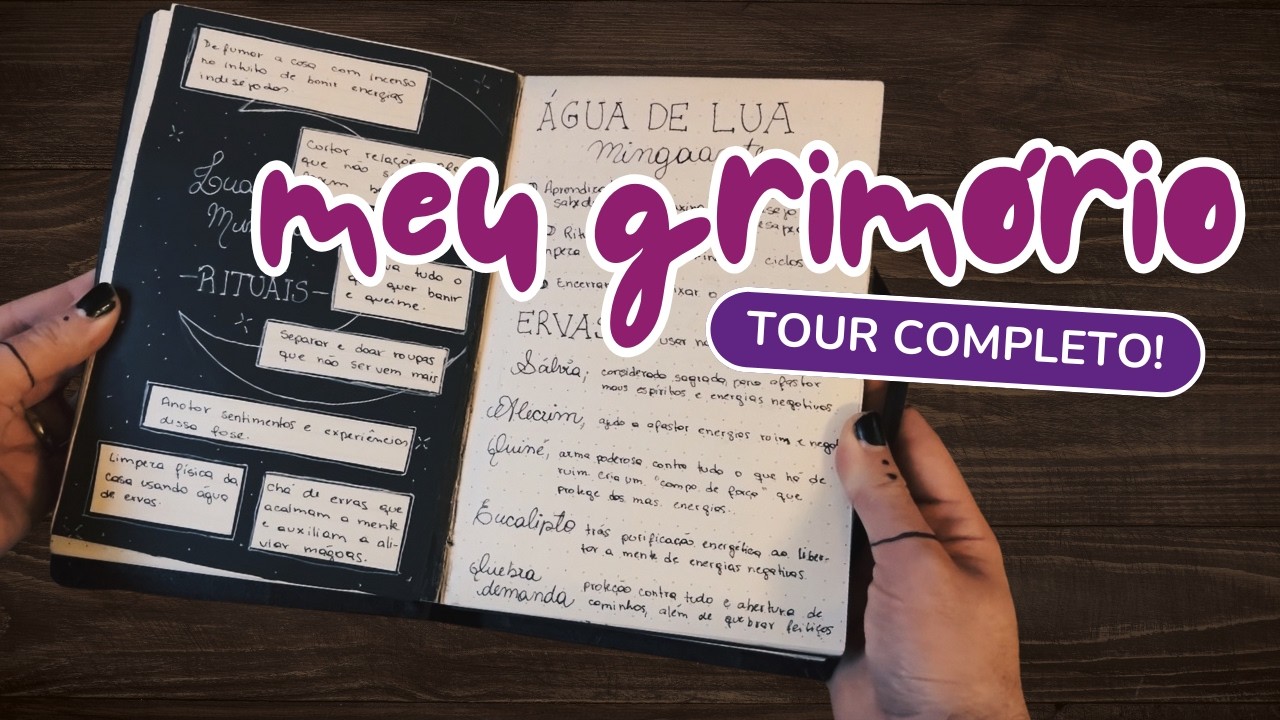 Defumar a casa com incenso
no intuito de banir energias
indesejadas.
Cortar relações
que não
Lua
RITUAIS
tudo o
quer banir
e queime.
Separar e doar roupas
que não servem mais
Anotar sentimentos e experiências
dessa fase.
Limpeza física da
casa usando água
de ervas.
Chá de ervas que
acalmam a mente
e auxiliam a ali-
viar mágoas.
ÁGUA DE LUA
Minguante
meu grimório
TOUR COMPLETO!
ciclos
Encerrar
ERVAS
Sálvia, considerada sagrada para afastar
maus espíritos e energias negativas
Alecrim, ajuda a afastar energias ruim e
Guiné, arma poderosa contra tudo o que há de
ruim. cria um "campo de força" que
protege das más energias.
Eucalipto trás purificação energética ao liber-
tar a mente de energias negativas.
Quebra
demanda proteção contra tudo e abertura de
caminhos, além de quebrar feitiços